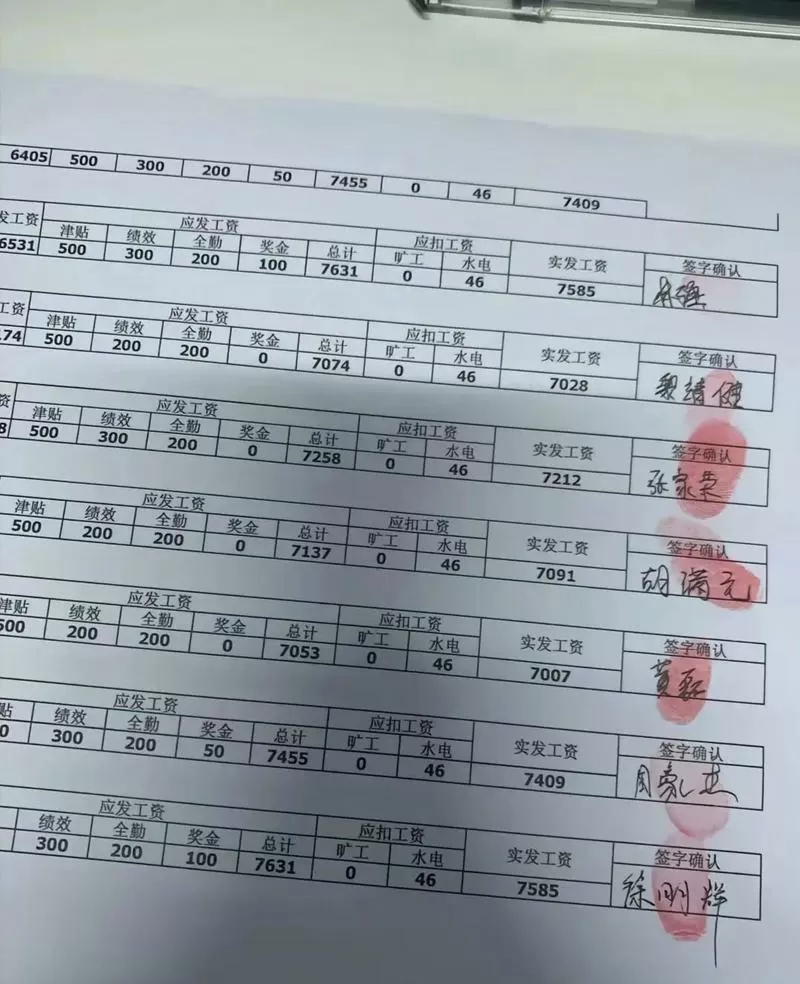 6405 500 300 200 50 7455 0 46 7409
发工资 应发工资 应扣工资 实发工资 签字确认
津贴 绩效 全勤 奖金 总计 旷工 水电
6531 500 300 200 100 7631 0 46 7585
工资 应发工资 应扣工资 实发工资 签字确认
津贴 绩效 全勤 奖金 总计 旷工 水电
174 500 200 200 0 7074 0 46 7028
资 应发工资 应扣工资 实发工资 签字确认
津贴 绩效 全勤 奖金 总计 旷工 水电
8 500 300 200 0 7258 0 46 7212 张家荣
应发工资 应扣工资 实发工资 签字确认
津贴 绩效 全勤 奖金 总计 旷工 水电
500 200 200 0 7137 0 46 7091 胡满元
应发工资 应扣工资 实发工资 签字确认
津贴 绩效 全勤 奖金 总计 旷工 水电
500 200 200 0 7053 0 46 7007 黄磊
应发工资 应扣工资 实发工资 签字确认
贴 绩效 全勤 奖金 总计 旷工 水电
0 300 200 50 7455 0 46 7409 周豪杰
应发工资 应扣工资 实发工资 签字确认
绩效 全勤 奖金 总计 旷工 水电
300 200 100 7631 0 46 7585 徐明辉